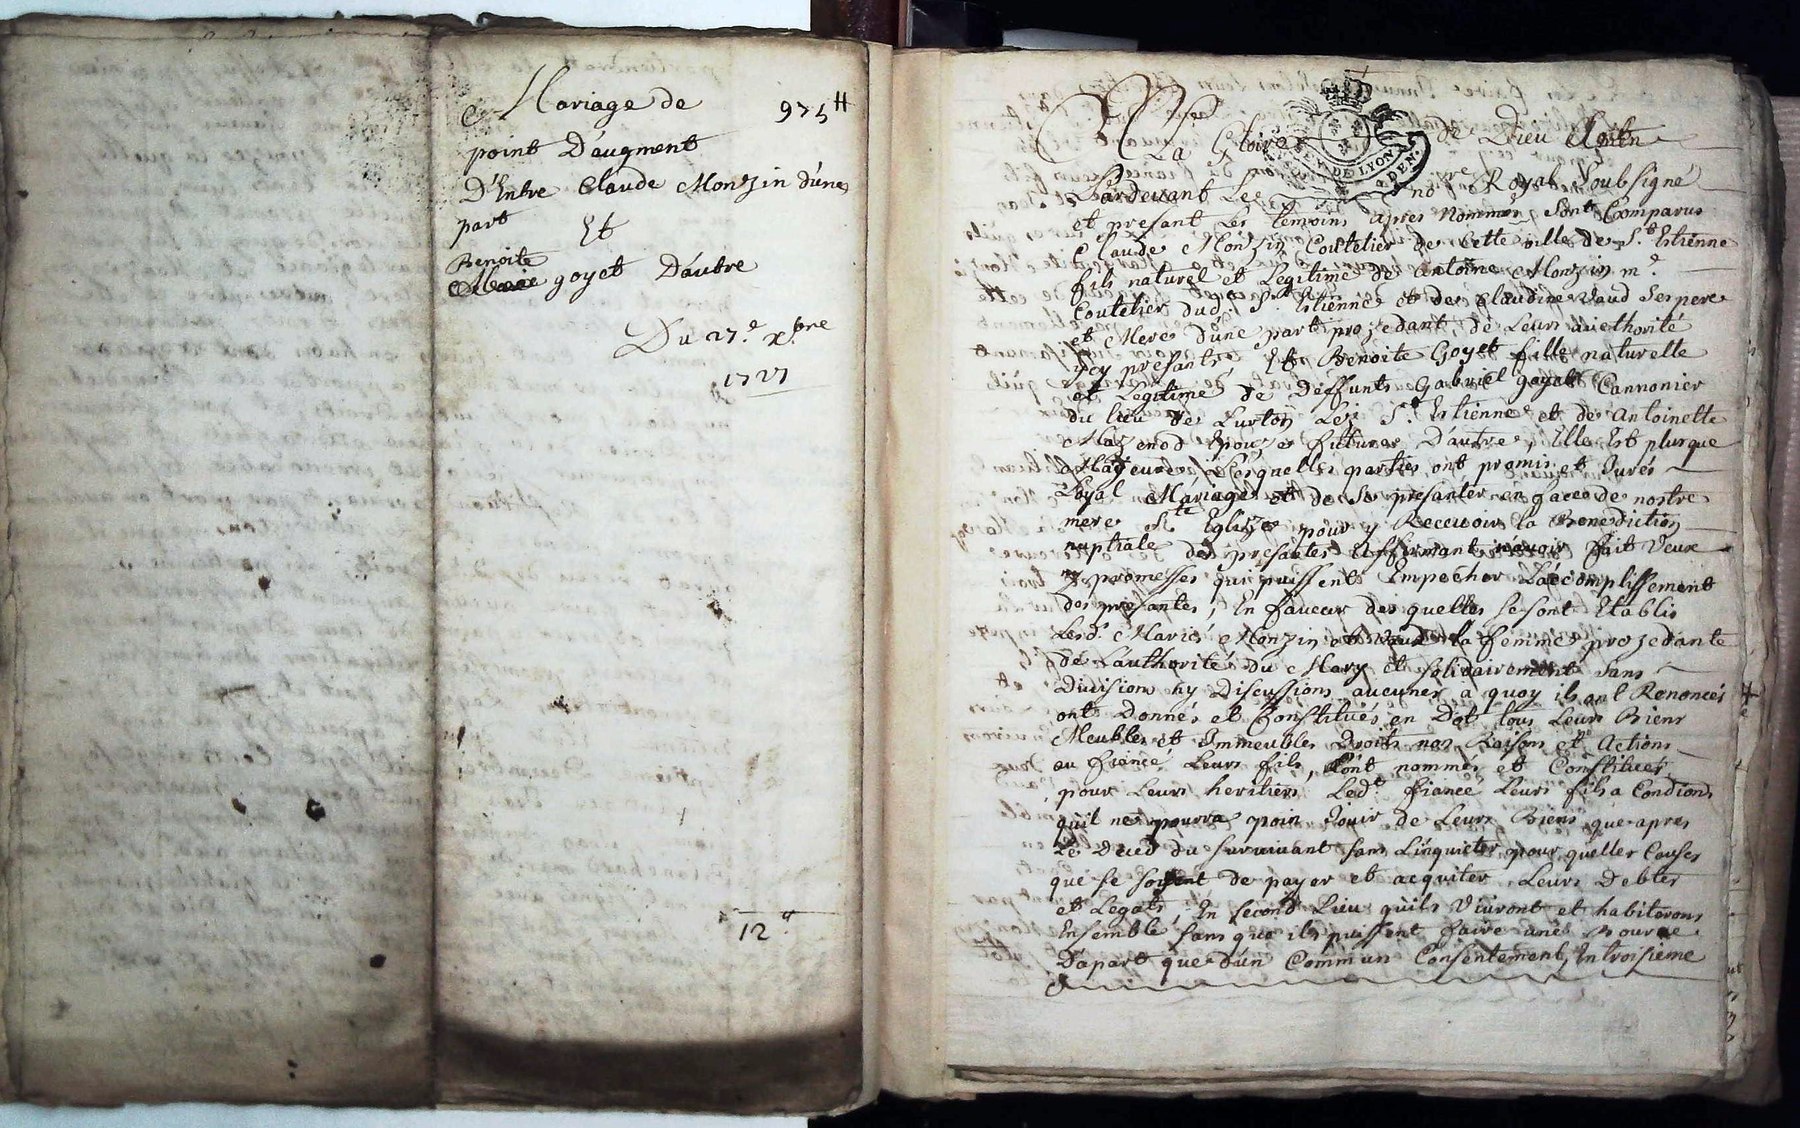 Mariage de
975 ₶
point D'augment
D'Entre Claude Monzin d'une
part
Et
Benoite
goyet D'autre
Du 27.e xbre
1727
12
A La Gloire de Dieu
GEN. DE LYON
DEN.
Pardevant Le no.re Royal Soubsigné
et presant Les temoins apres nommés, sont Comparus
Claude Monzin Coutelier de Cette ville de St. Estienne
fils naturel et Legitime de antoine Monzin m.e
Coutelier dud. St. Estienne et de Claudine Vaud ses pere
et Mere d'une part prozedant de Leurs authorité
ycy presants, Et Benoite Goyet fille naturelle
et Legitime de Deffunts Gabriel goyet Cannonier
du lieu de Lez St. Estienne et de antoinette
Mazenod Epouze future D'autre, Elle Est plusque
Majeure, Lesquelles parties ont promis et Jurés
Loyal Mariage et de se presanter en face de nostre
mere Ste Eglize pour y Recevoir la Benediction
nuptiale des presantes affirmant navoir fait veux
ny promesses qui puissent Empecher L'accomplissement
des presantes, En faveur des quelles se sont Etablis
Lesd. Mariés Monzin et Vaud la femme prozedante
de L'authorité du Mary et solidairement sans
Division ny Discussions aucunes a quoy ils ont Renoncés
ont Donnés et Constitués en Dot tous Leurs Biens
Meubles et Immeubles Droits noz Raisons et Actions
au fiancé Leurs fils, L'ont nommés et Constitués
pour Leurs heritiers Led.t fiancé Leurs fils a Condions
qu'il ne pourra poin Jouir de Leurs Biens que apres
Le Deced du survivant sans L'inquieter pour quelles Causes
que se soient de payer et acquiter Leurs Debtes
et Legats, En second Lieu quils Vivront et habiterons
Ensemble sans que ils puissent faire une Bource
D'apart que d'un Commun Consentement, En troisieme